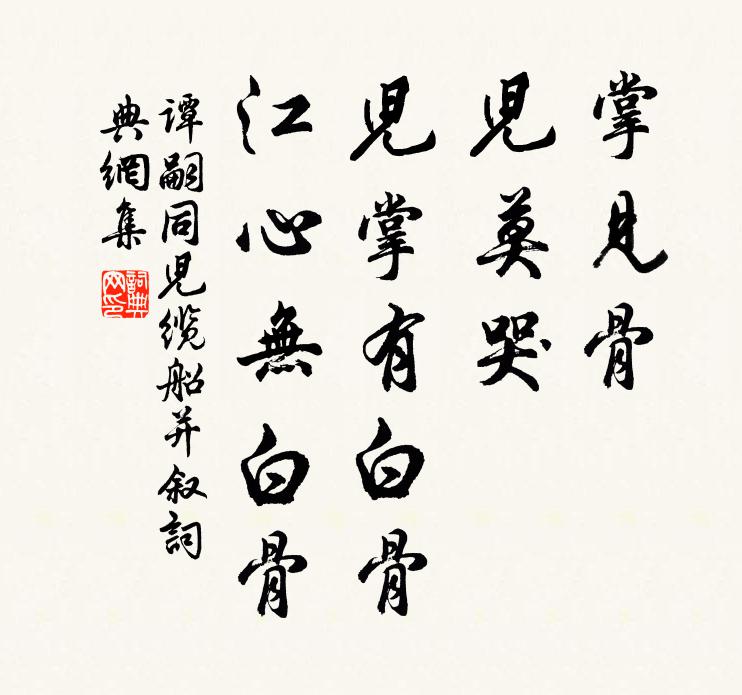 掌見骨
兒莫哭
兒掌有白骨
江心無白骨
谭嗣同兒缆船并叙詞
典網集
詞典網印